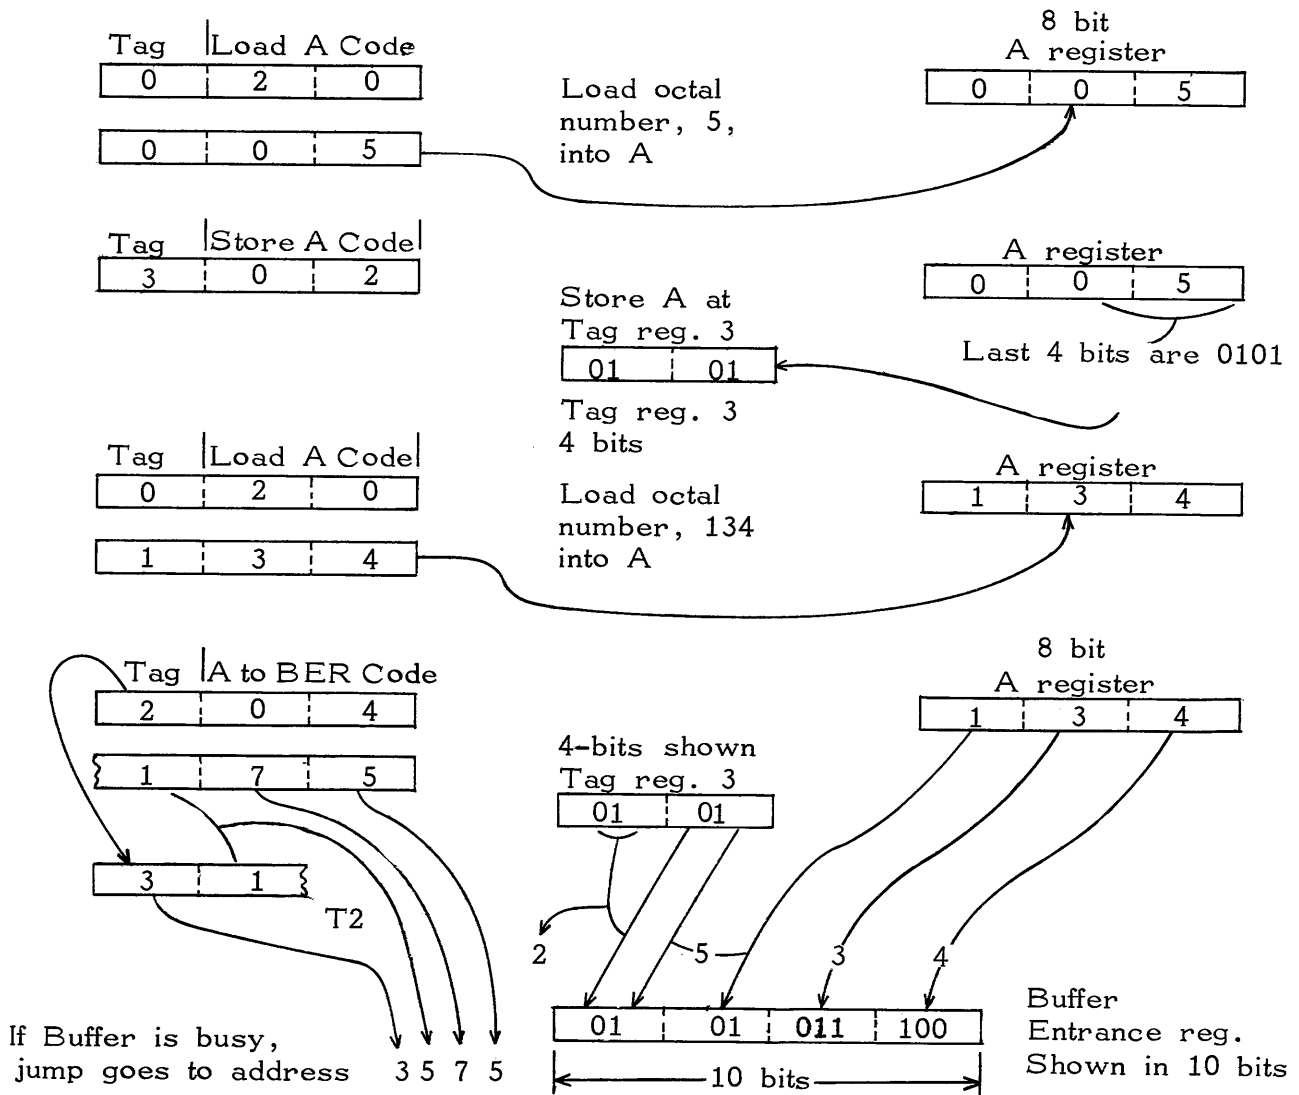 Tag |Load A Code
0 2 0
0 0 5
Load octal
number, 5,
into A
8 bit
A register
0 0 5
Tag |Store A Code|
3 0 2
Store A at
Tag reg. 3
01 01
Tag reg. 3
4 bits
A register
0 0 5
Last 4 bits are 0101
Tag |Load A Code|
0 2 0
1 3 4
Load octal
number, 134
into A
A register
1 3 4
Tag |A to BER Code
2 0 4
1 7 5
3 1
T2
If Buffer is busy,
jump goes to address 3 5 7 5
4-bits shown
Tag reg. 3
01 01
8 bit
A register
1 3 4
2 5 3 4
01 01 011 100
10 bits
Buffer
Entrance reg.
Shown in 10 bits